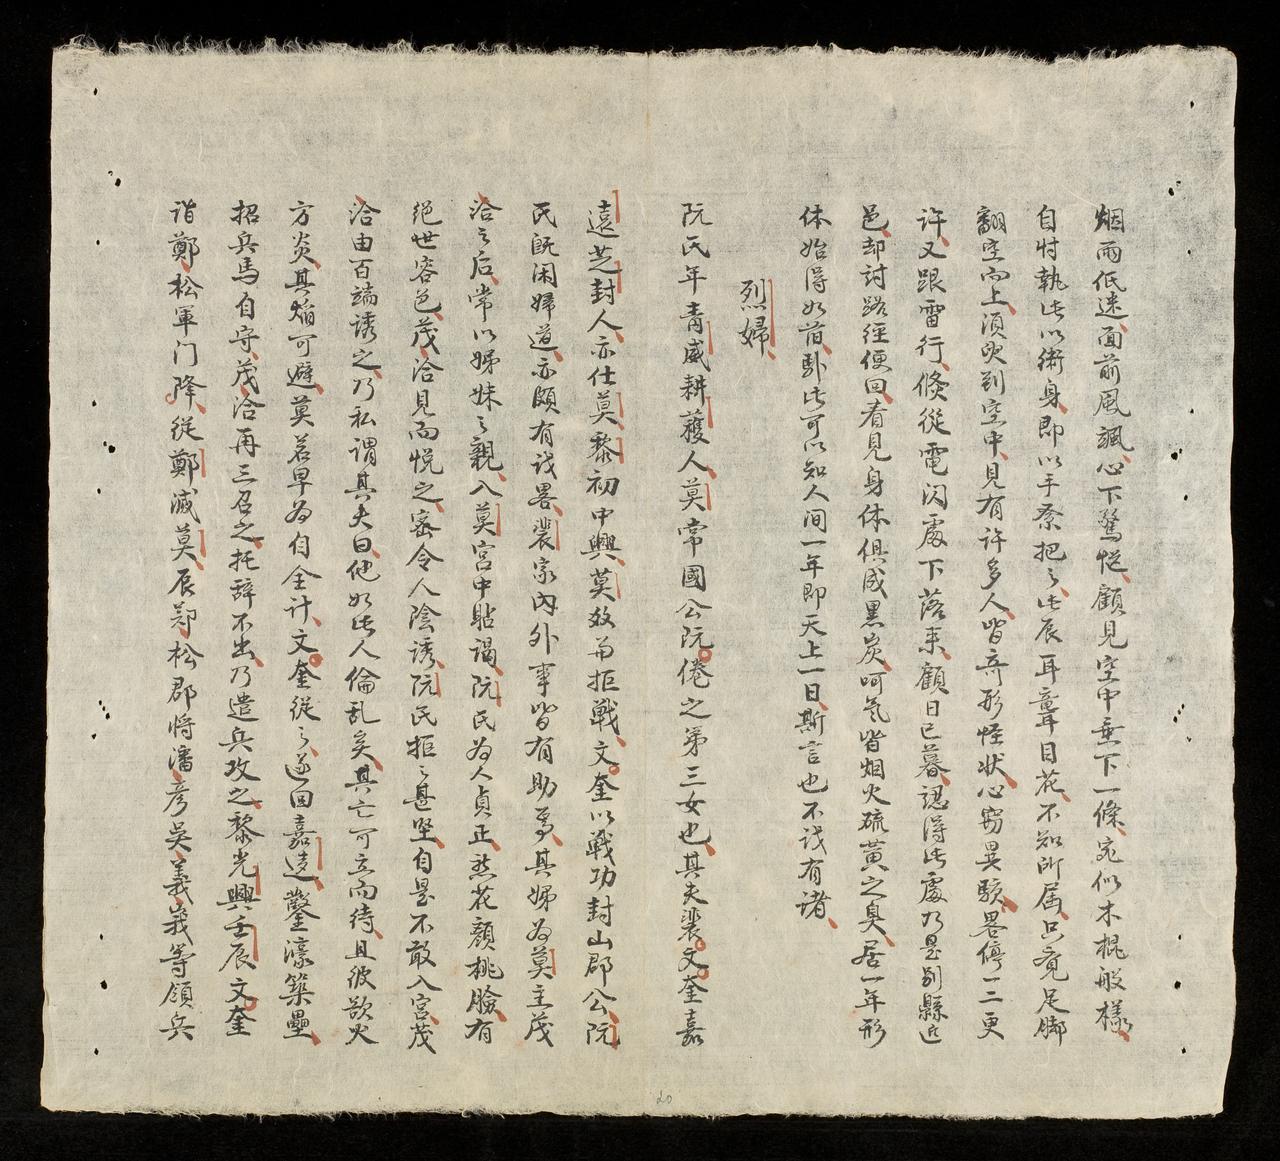 烟雨低迷面前風颯心下驚怳顧見空中垂下一條宛似木棍般樣
自忖執此以衛身即以手奈把之此辰耳聾目花不知所届只覓足脚
翻空向上須臾到空中見有許多人皆奇形怪狀心竊異駭畧停一二更
许又跟雷行倏從電闪處下落来顧日已暮認得此處乃是别縣近
邑却討路徑便回看見身体俱成黑炭呵氣皆烟火硫黄之臭居一年形
体始得如前卧此可以知人间一年即天上一日斯言也不誠有諸
烈婦
阮氏年青威耕穫人莫常國公阮倦之第三女也其夫裴文奎嘉
遠芝封人亦仕莫黎初中興莫敬而拒戰文奎以戰功封山郡公阮
氏既闲婦道亦頗有誠畧裴家内外事皆有助焉其娣为莫主茂
洽之后常以娣妹之親入莫宮中貼謁阮氏为人貞正然花顔桃臉有
绝世容色茂洽見而悦之密令人陰誘阮氏拒之甚坚自是不敢入宮茂
洽由百端誘之乃私謂其夫曰他如此人倫乱矣其亡可立而待且彼欲火
方炎其焰可避莫若早为自全计文奎從之遂回嘉遠鑿濠築壘
招兵馬自守茂洽再三召之托辞不出乃遣兵攻之黎光興壬辰文奎
诣鄭松軍门降從鄭滅莫辰郑松郡将潘彦吴義峩等領兵
20